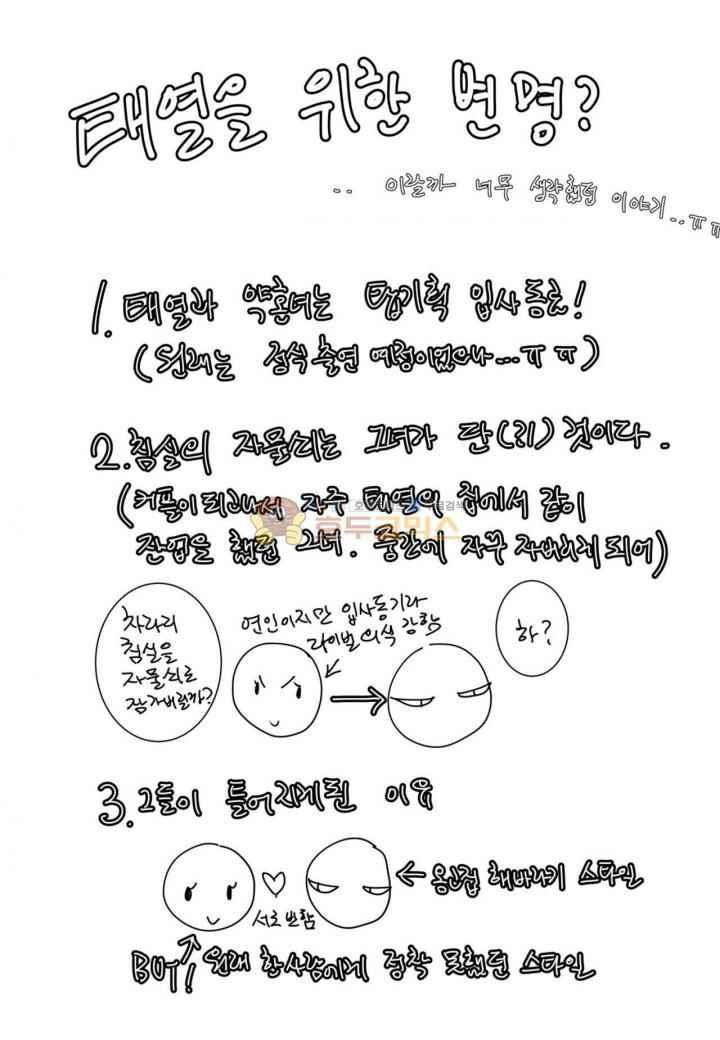 태열을 위한 변명?
.. 이랄까 너무 생략했던 이야기..ㅠㅠ
1. 태열과 약혼녀는 탑기획 입사동료!
(원래는 정식 출연 예정이었으나...ㅠㅠ)
2. 침실의 자물쇠는 그녀가 단(리) 것이다.
(커플이 되고나서 자주 태열의 집에서 같이
잔업을 했던 그녀. 중간에 자꾸 자버리게 되어)
차라리
침실을
자물쇠로
잠가버릴까?
연인이지만 입사동기라
라이벌의식 강함
하?
3. 그들이 틀어지게된 이유
← 옹고집 해바라기 스타일
서로 반함
BUT! 원래 한사람에게 정착 못했던 스타일
호두코믹스